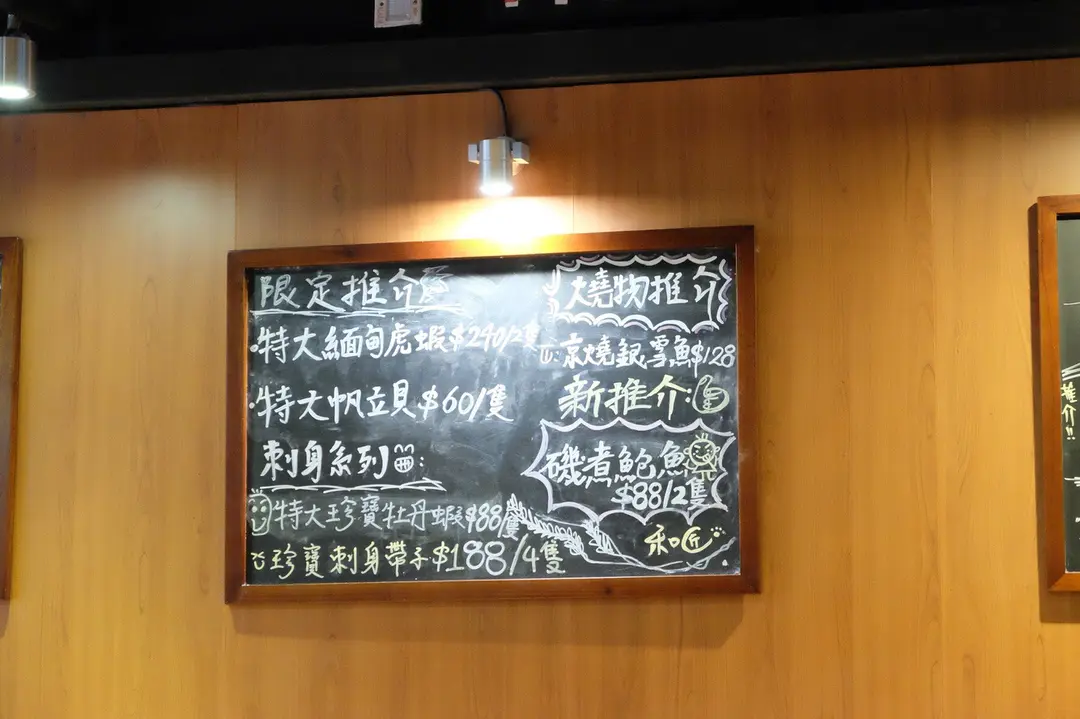 限定推介
·特大緬甸虎蝦$240/2隻
·特大帆立貝$60/隻
刺身系列:
特大珍寶牡丹蝦$88/隻
珍寶刺身帶子$188/4隻
燒物推介
京燒銀雪魚$128
新推介:
磯煮鮑魚
$88/2隻
和匠
推介!!